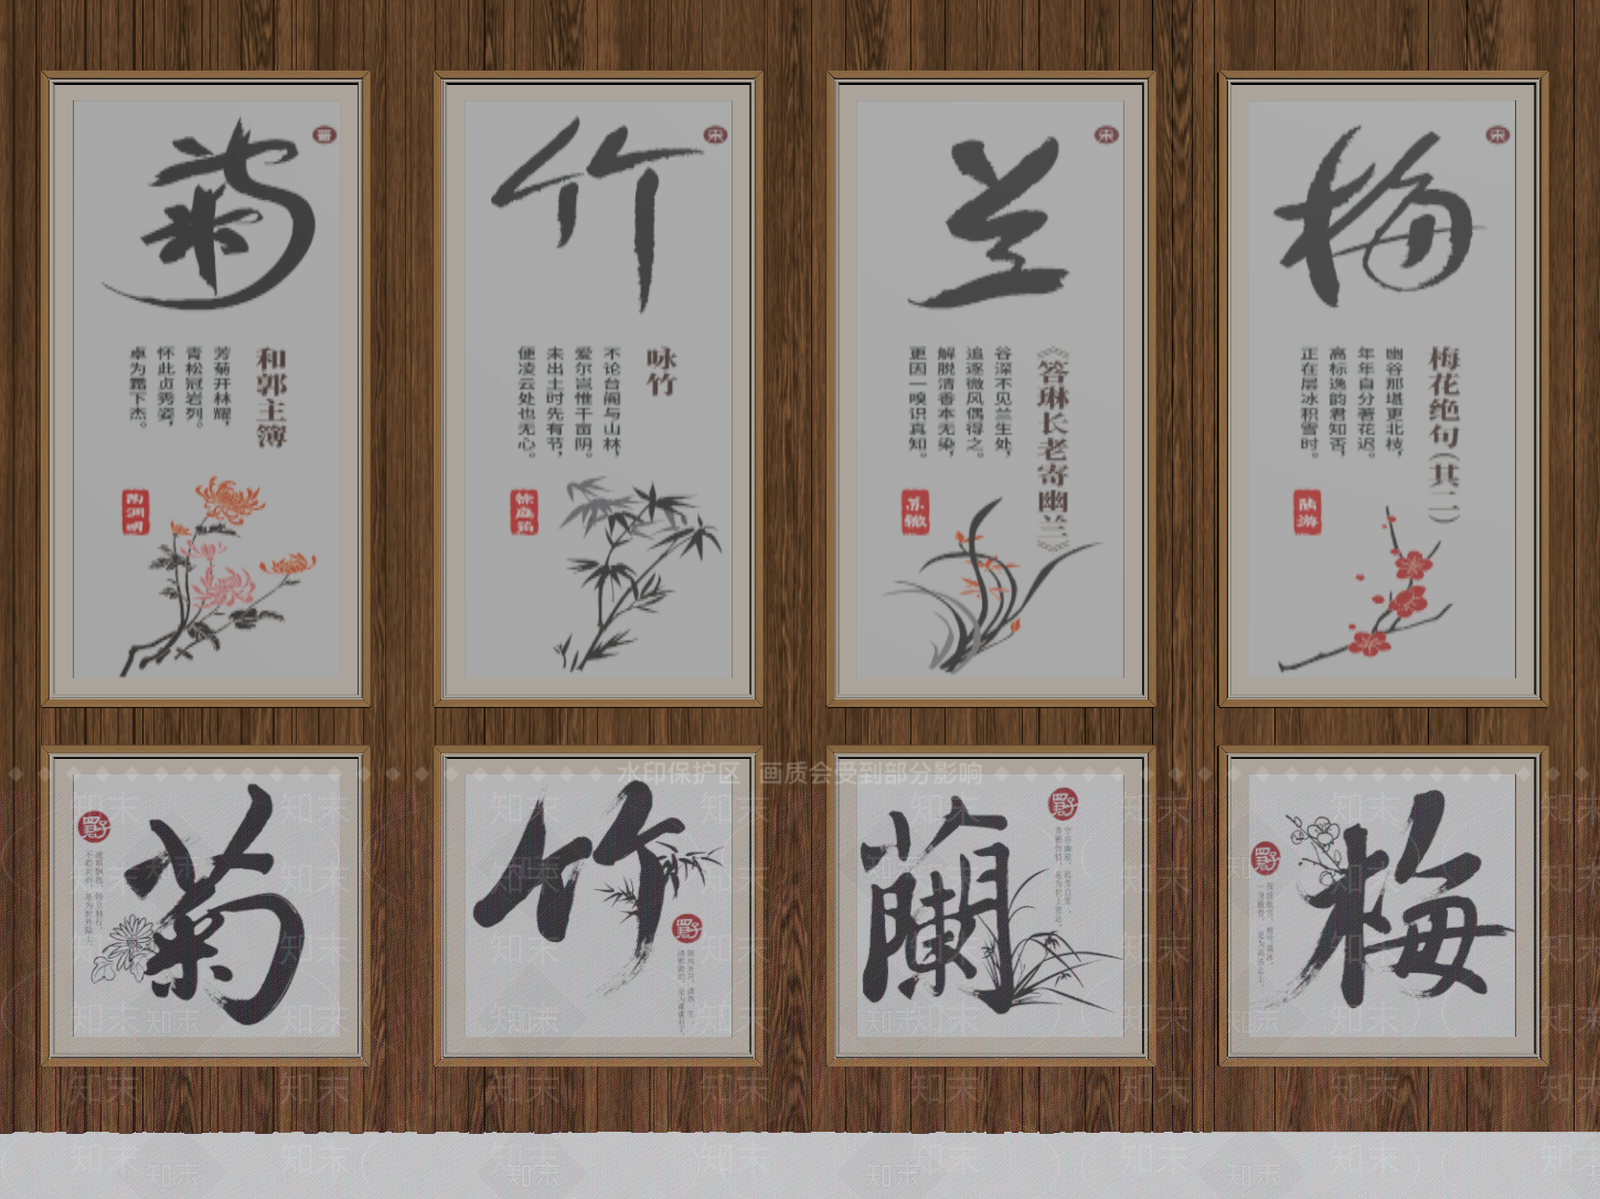 菊
晋
和郭主簿
芳菊开林耀，
青松冠岩列。
怀此贞秀姿，
卓为霜下杰。
陶渊明
竹
宋
咏竹
不论台阁与山林，
爱尔岂惟千亩阴。
未出土时先有节，
便凌云处也无心。
徐庭筠
兰
宋
《答琳长老寄幽兰》
谷深不见兰生处，
追逐微风偶得之。
解脱清香本无染，
更因一嗅识真知。
苏辙
梅
宋
梅花绝句（其二）
幽谷那堪更北枝，
年年自分著花迟。
高标逸韵君知否，
正在层冰积雪时。
陆游
水印保护区 画质会受到部分影响
菊
四君子
竹
四君子
蘭
四君子
梅
四君子
知末